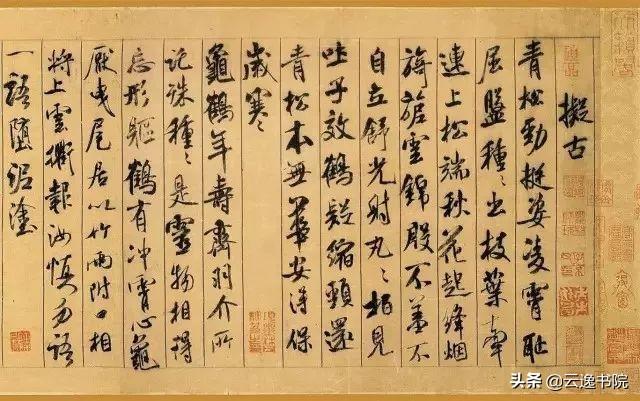 擬古
青松勁挺姿凌霄恥
屈盤種々出枝葉牽
連上松端秋花起絳烟
旖旎雲錦殷不羞不
自立舒光射丸々柏見
吐子效鶴疑縮頸還
青松本無華安得保
歲寒
龜鶴年壽齊羽介所
託殊種々是靈物相得
忘形軀鶴有冲霄心龜
厭曳尾居以竹兩附口相
將上雲衢報汝慎勿語
一語墮泥塗
头条 @云逸书院